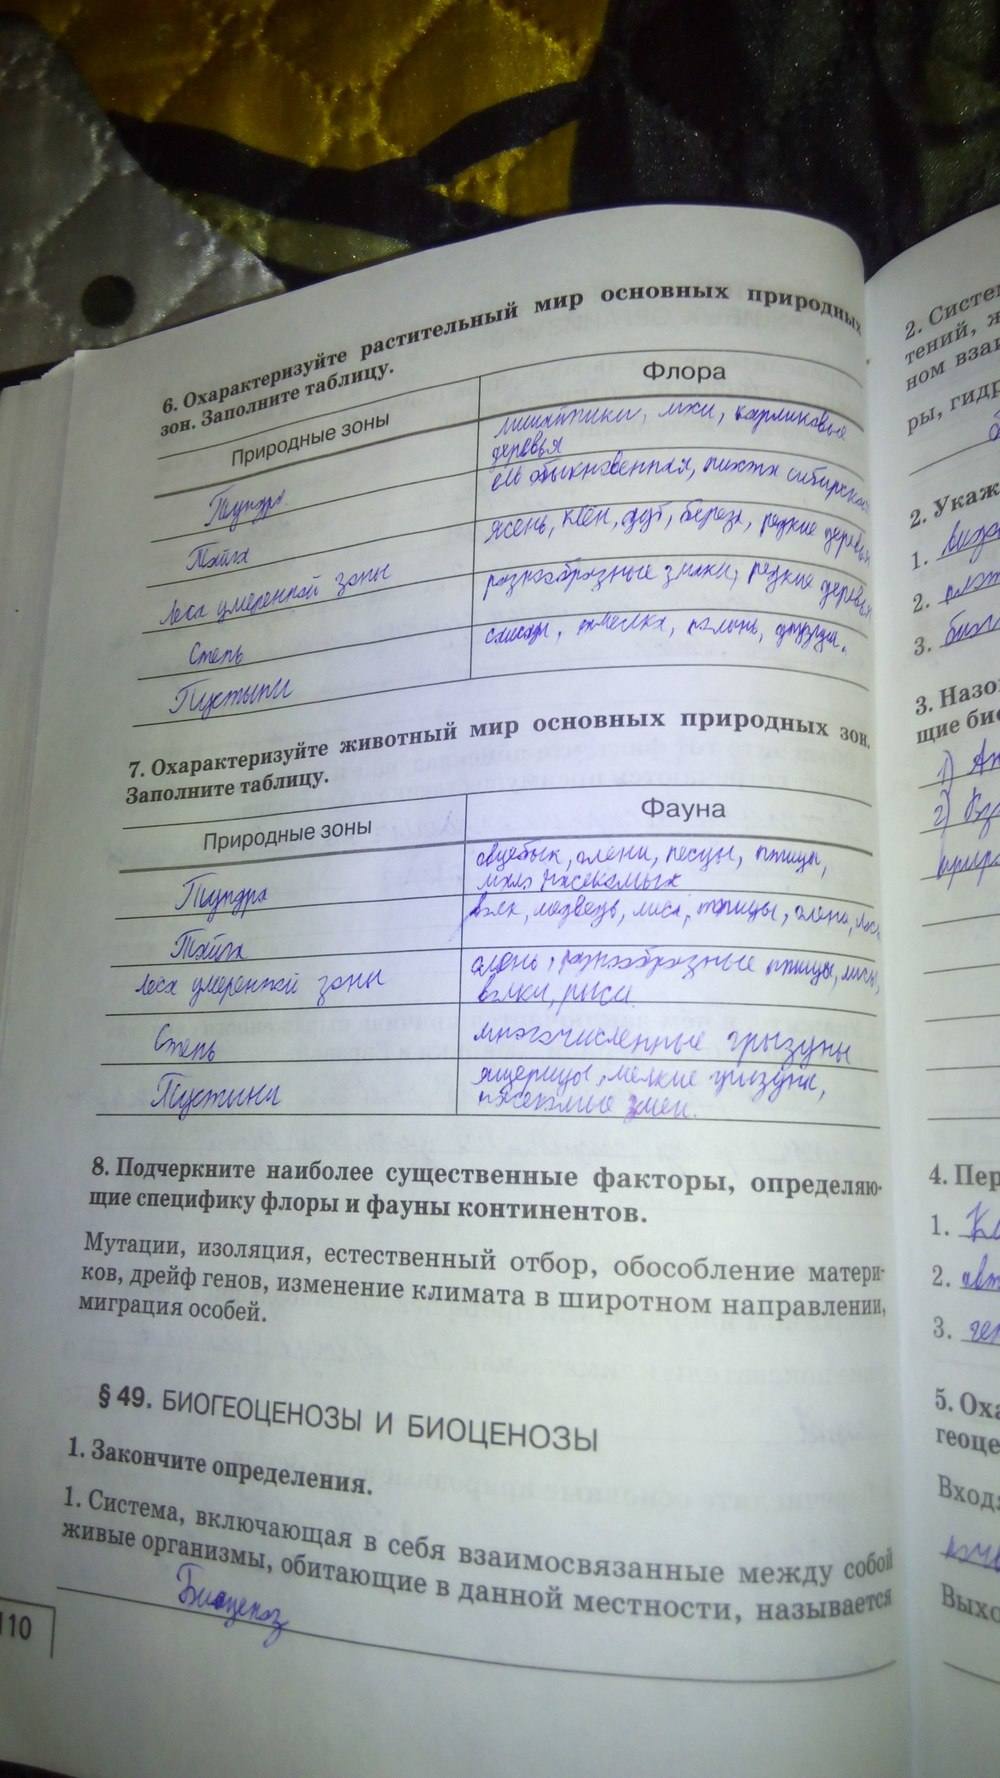 6. Охарактеризуйте растительный мир основных природных
зон. Заполните таблицу.
Природные зоны
Флора
Тундра
лишайники, мхи, карликовые
деревья
Тайга
ель обыкновенная, пихта сибирская
Леса умеренной зоны
ясень, клен, дуб, береза, редкие деревья
Степь
разнообразные злаки, редкие деревья
Пустыни
полынь,
7. Охарактеризуйте животный мир основных природных зон.
Заполните таблицу.
Природные зоны
Фауна
Тундра
овцебык, олени, песцы, птицы,
мало насекомых
Тайга
волк, медведь, лиса, птицы, олени,
Леса умеренной зоны
олень, разнообразные птицы, лисы,
волки, рыси
Степь
многочисленные грызуны
Пустыни
ящерицы, мелкие грызуны,
насекомые змеи.
8. Подчеркните наиболее существенные факторы, определяю-
щие специфику флоры и фауны континентов.
Мутации, изоляция, естественный отбор, обособление матери-
ков, дрейф генов, изменение климата в широтном направлении,
миграция особей.
§ 49. БИОГЕОЦЕНОЗЫ И БИОЦЕНОЗЫ
1. Закончите определения.
1. Система, включающая в себя взаимосвязанные между собой
живые организмы, обитающие в данной местности, называется
Биоценоз
110
2. Систем
тений, ж
ном взаи
ры, гидр
2. Укаж
1.
2.
3.
3. Назо
щие био
1)
2)
4. Пер
1.
2.
3.
5. Оха
геоце
Входя
Выхо